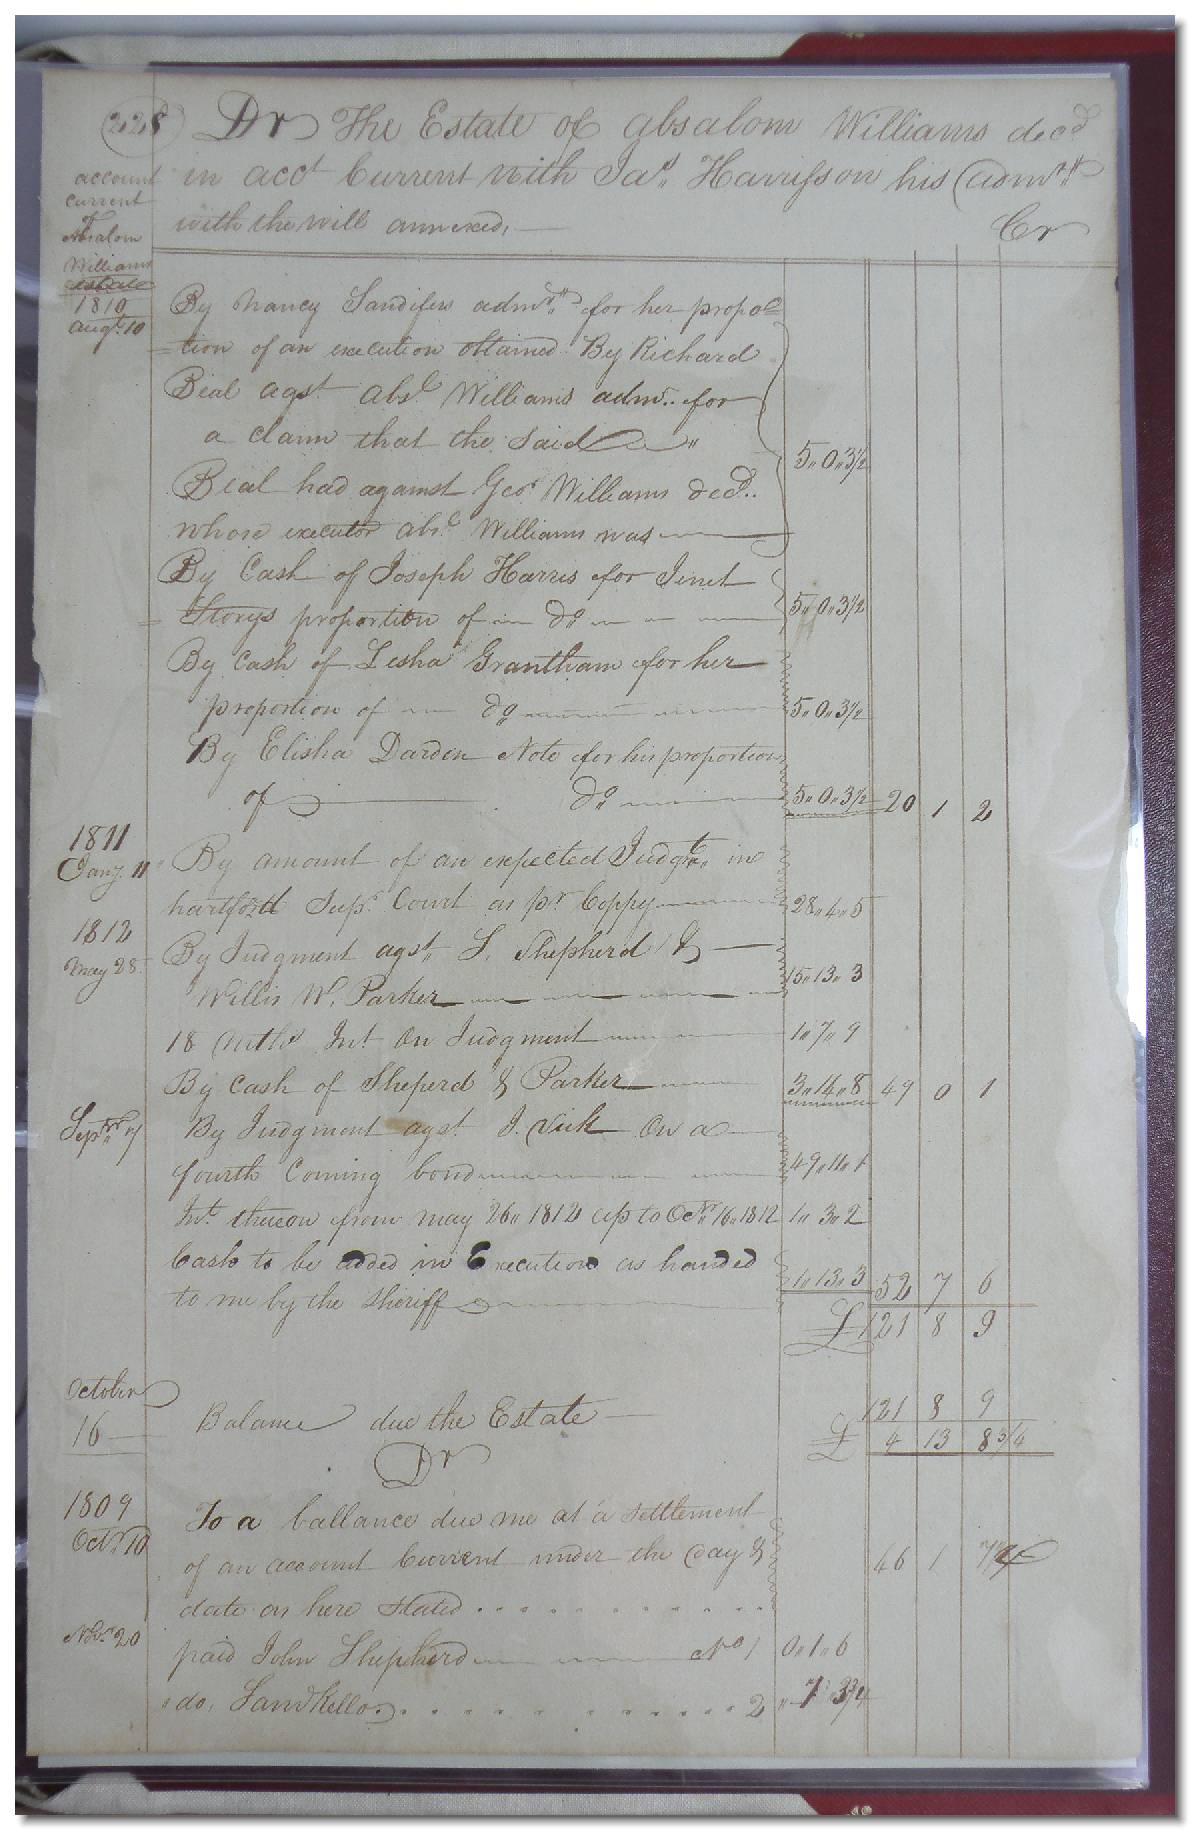 228 Dr The Estate of absalom Williams decd
in acct Current with Jas. Harrisson his admr.
with the will annexed,
Cr
account
current
of
Absalom
Williams
estate
1810
augt. 10
By Nancy Sandifers admr. for her propo=
=tion of an execution obtained By Richard
Beal agst. absl. Williams admr. for
a claim that the said "
Beal had against Geo. Williams decd.. 5,, 0,, 3 1/2
whose executor absl. Williams was
By Cash of Joseph Harris for Jenet
Storys proportion of do 5,, 0,, 3 1/2
By Cash of Lesha Grantham for her
proportion of do 5,, 0,, 3 1/2
By Elisha Darden Note for his proportion
of do 5,, 0,, 3 1/2 20 1 2
1811
Jany. 11 By amount of an expected Judgt. in
hartford Supr. Court as pr. Coppy 28,, 4,, 5
1812
May 28. By Judgment agst. S. Shepherd &
Willis W. Parker 15,, 13,, 3
18 mths Int on Judgment 1,, 7,, 9
By Cash of Sheperd & Parker 3,, 14,, 8 49 0 1
Septr. 7 By Judgment agst. J. Vick On a
fourth Coming bond 49,, 11,, 1
Int. thereon from may 26,, 1812 up to Octr. 16,, 1812 1,, 3,, 2
Cash to be added in Execution as handed
to me by the Sheriff 1,, 13,, 3 52 7 6
£121 8 9
October
16 Balance due the Estate
121 8 9
£ 4 13 8 3/4
Dr
1809
Octr. 10 To a ballance due me at a settlement
of an account Current under the day & 46 1
date as here Stated
Novr. 20 paid John Shepherd No 1 0,, 1,, 6
" do, 2 " 7 3 3/4